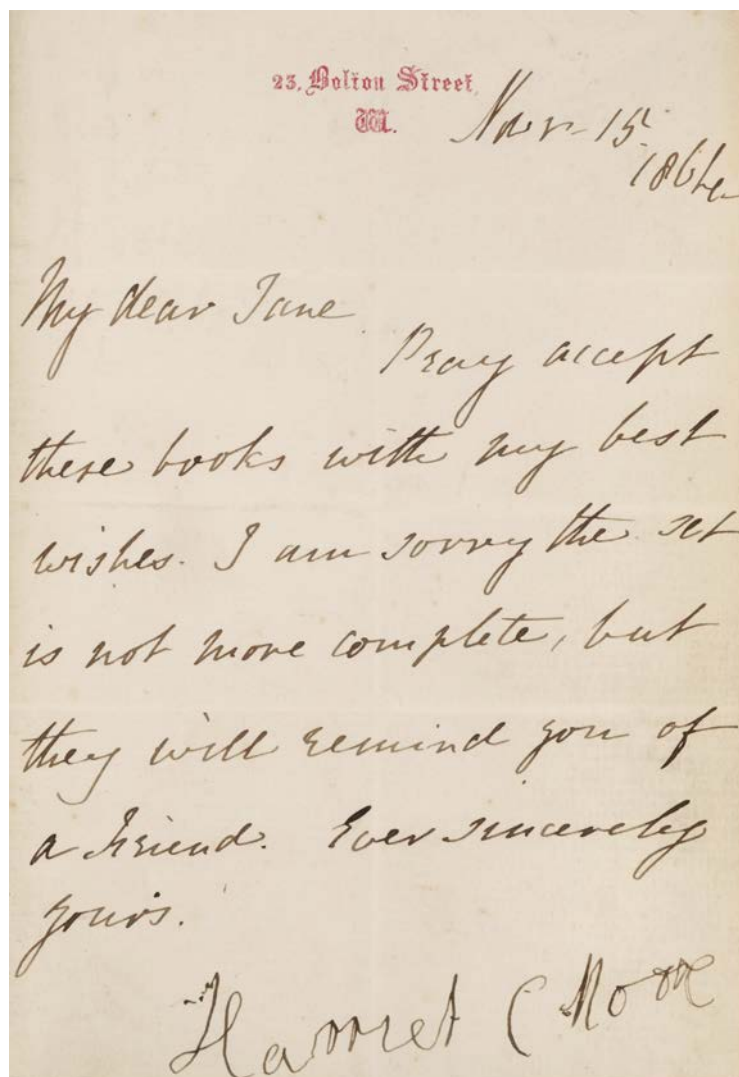 23, Bolton Street,
W.
Novr. 15
1864
My dear Jane
Pray accept
these books with my best
wishes. I am sorry the set
is not more complete, but
they will remind you of
a friend. Ever sincerely
yours.
Harriet C Moore